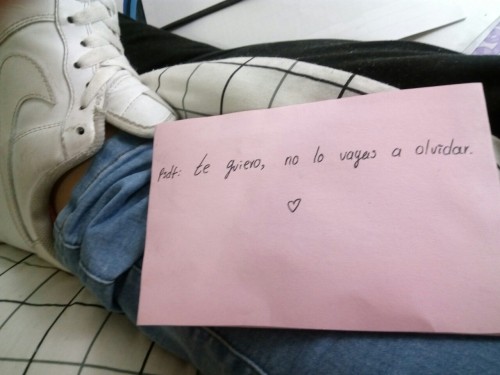 Psdt: te quiero, no lo vayas a olvidar.